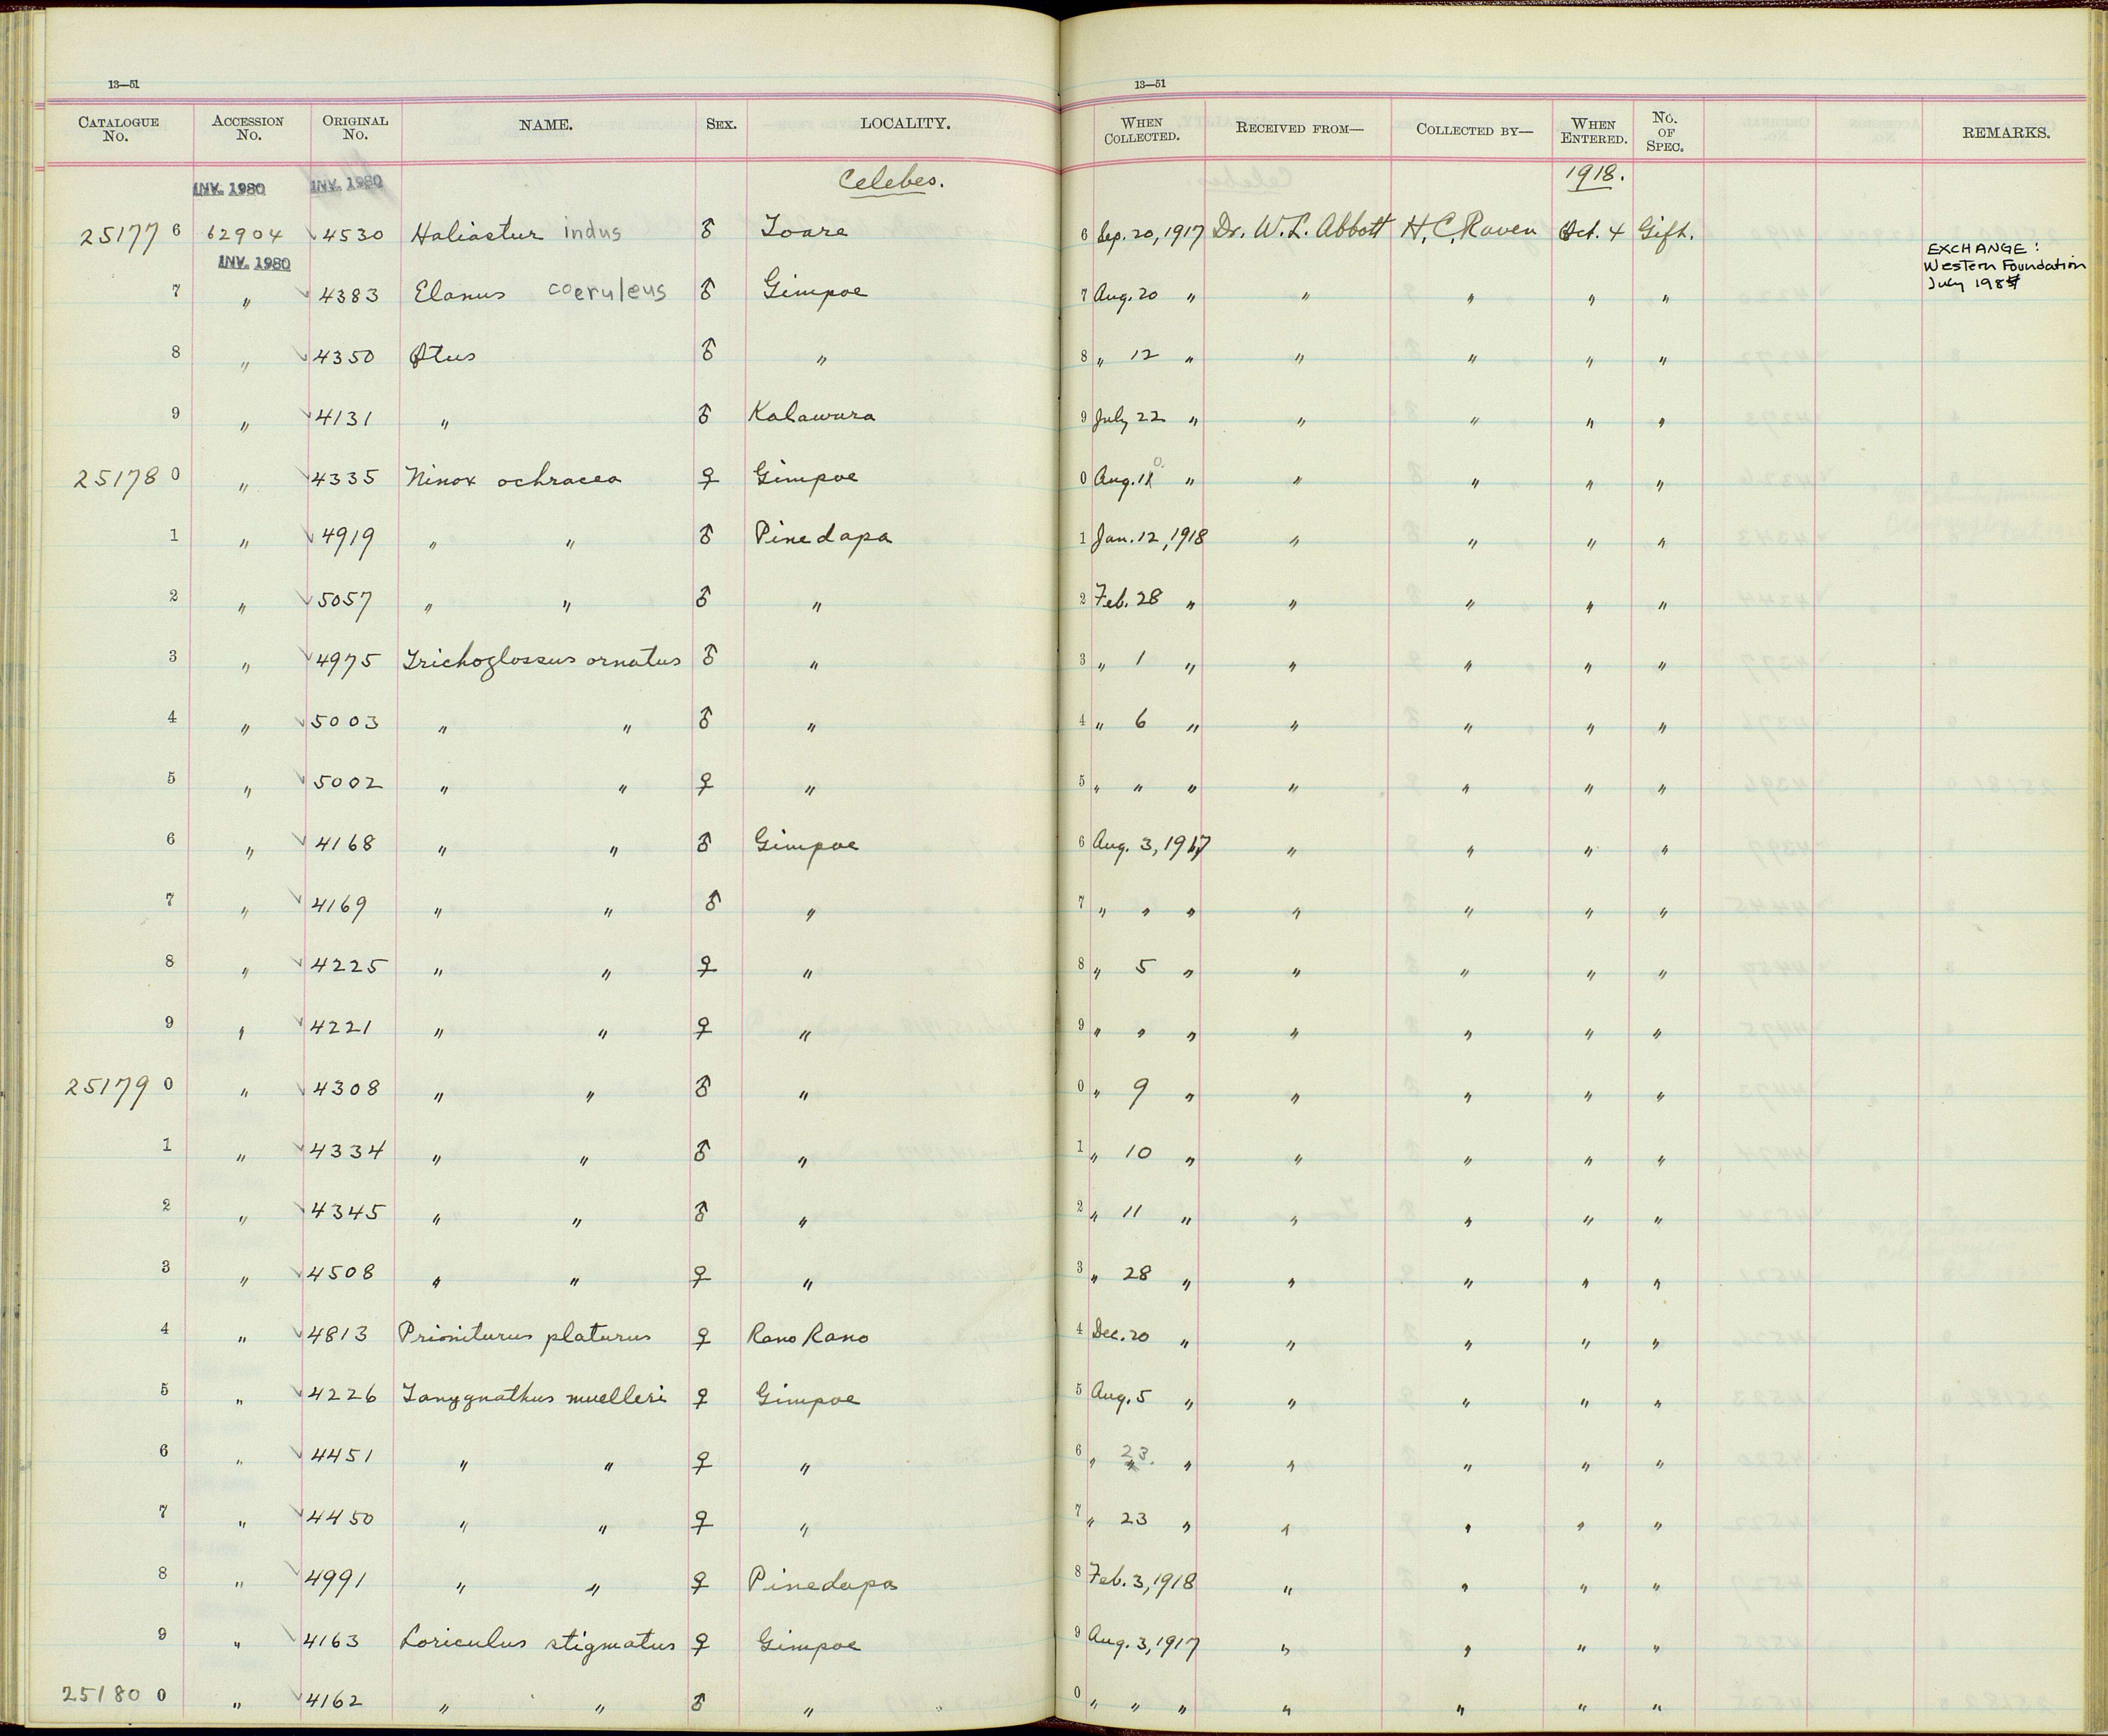 13—51
13—51
CATALOGUE No. ACCESSION No. ORIGINAL No. NAME. SEX. LOCALITY. WHEN COLLECTED. RECEIVED FROM— COLLECTED BY— WHEN ENTERED. No. OF SPEC. REMARKS.
INV. 1980 INV. 1980 Celebes. 1918.
25177 6 62904 4530 Haliastur indus ♂ Toare 6 Sep. 20, 1917 Dr. W. L. Abbott H. C. Raven Oct. 4 Gift.
INV. 1980
EXCHANGE:
Western Foundation
July 1985
7 " 4383 Elanus coeruleus ♂ Gimpoe 7 Aug. 20 " " " " "
8 " 4350 Otus ♂ " 8 " 12 " " " " "
9 " 4131 " ♂ Kalawara 9 July 22 " " " " "
25178 0 " 4335 Ninox ochracea ♀ Gimpoe 0 Aug. 10 " " " " "
1 " 4919 " " ♂ Pinedapa 1 Jan. 12, 1918 " " " "
2 " 5057 " " ♂ " 2 Feb. 28 " " " " "
3 " 4975 Trichoglossus ornatus ♂ " 3 " 1 " " " " "
4 " 5003 " " ♂ " 4 " 6 " " " " "
5 " 5002 " " ♀ " 5 " " " " " " "
6 " 4168 " " ♂ Gimpoe 6 Aug. 3, 1917 " " " "
7 " 4169 " " ♂ " 7 " " " " " " "
8 " 4225 " " ♀ " 8 " 5 " " " " "
9 " 4221 " " ♀ " 9 " " " " " " "
25179 0 " 4308 " " ♂ " 0 " 9 " " " " "
1 " 4334 " " ♂ " 1 " 10 " " " " "
2 " 4345 " " ♂ " 2 " 11 " " " " "
3 " 4508 " " ♀ " 3 " 28 " " " " "
4 " 4813 Prioniturus platurus ♀ Rano Rano 4 Dec. 20 " " " " "
5 " 4226 Tanygnathus muelleri ♀ Gimpoe 5 Aug. 5 " " " " "
6 " 4451 " " ♀ " 6 " 23. " " " " "
7 " 4450 " " ♀ " 7 " 23 " " " " "
8 " 4991 " " ♀ Pinedapa 8 Feb. 3, 1918 " " " "
9 " 4163 Loriculus stigmatus ♀ Gimpoe 9 Aug. 3, 1917 " " " "
25180 0 " 4162 " " ♂ " 0 " " " " " " "